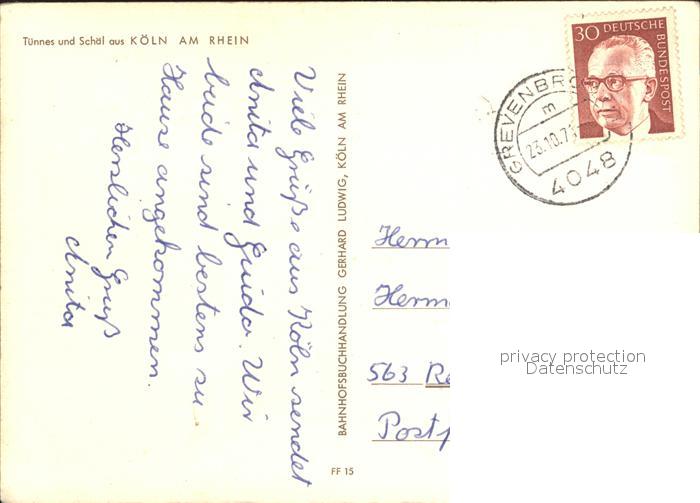 Tünnes und Schäl aus KÖLN AM RHEIN
Viele Grüße aus Köln sendet
Anita und Guido. Wir
beide sind bestens zu
Hause angekommen.
Herzlichen Gruß
Anita
BAHNHOFSBUCHHANDLUNG GERHARD LUDWIG, KÖLN AM RHEIN
FF 15
30 DEUTSCHE BUNDESPOST
GREVENBRO
m
23.10.7
4048
Herrn
Herm
563 Re
Postf
privacy protection
Datenschutz